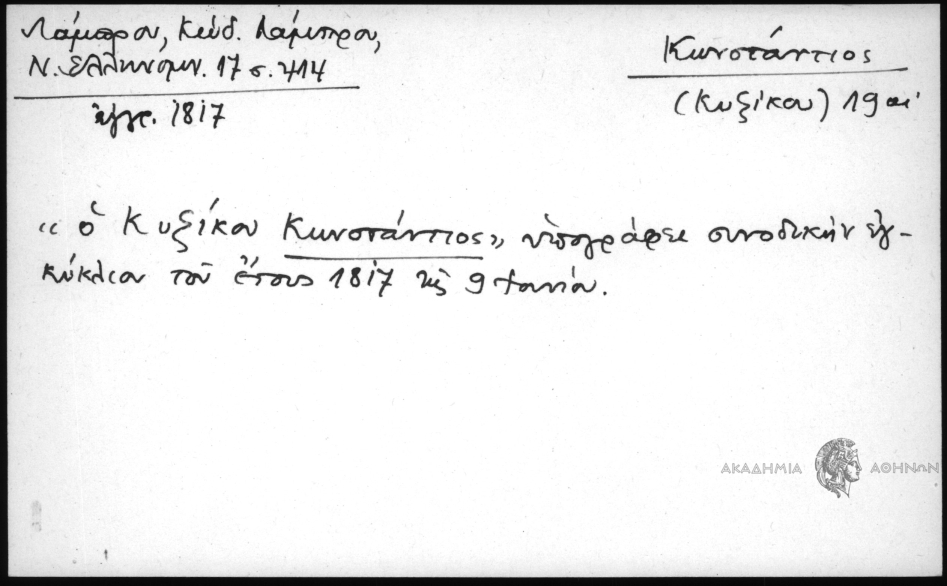 Λάμπρου, Κώδ. Λάμπρου,
Ν. Ἑλληνομν. 17 σ. 414
ἔγγρ. 1817
Κωνστάντιος
(Κυζίκου) 19 αἰ
«ὁ Κυζίκου Κωνστάντιος» ὑπογράφει συνοδικὴν ἐγ-
κύκλιον τοῦ ἔτους 1817 τῆς 9
ΑΚΑΔΗΜΙΑ ΑΘΗΝΩΝ